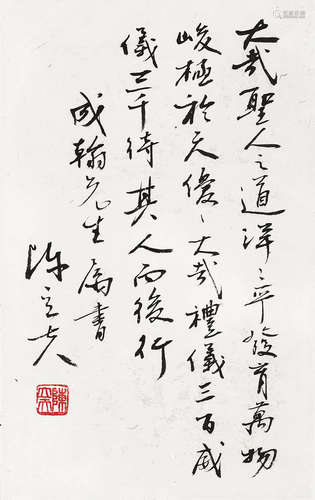 大哉聖人之道洋々乎發育萬物
峻極於天優々大哉禮儀三百威
儀三千待其人而後行
成翰先生屬書
陳立夫